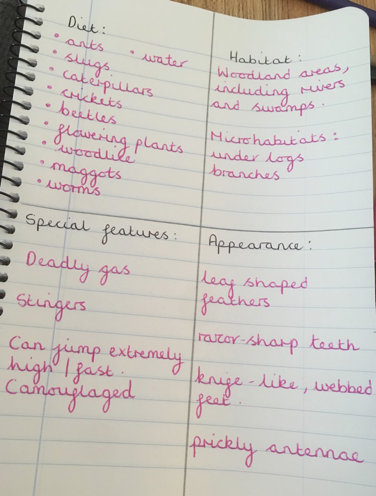 Diet:
• ants • water
• slugs
• caterpillars
• crickets
• beetles
• flowering plants
• woodlice
• maggots
• worms
Habitat:
Woodland areas,
including rivers
and swamps.
Microhabitats:
under logs
branches
Special features:
Deadly gas
Stingers
Can jump extremely
high / fast.
Camouflaged
Appearance:
leaf shaped
feathers
razor-sharp teeth
knife-like, webbed
feet.
prickly antennae